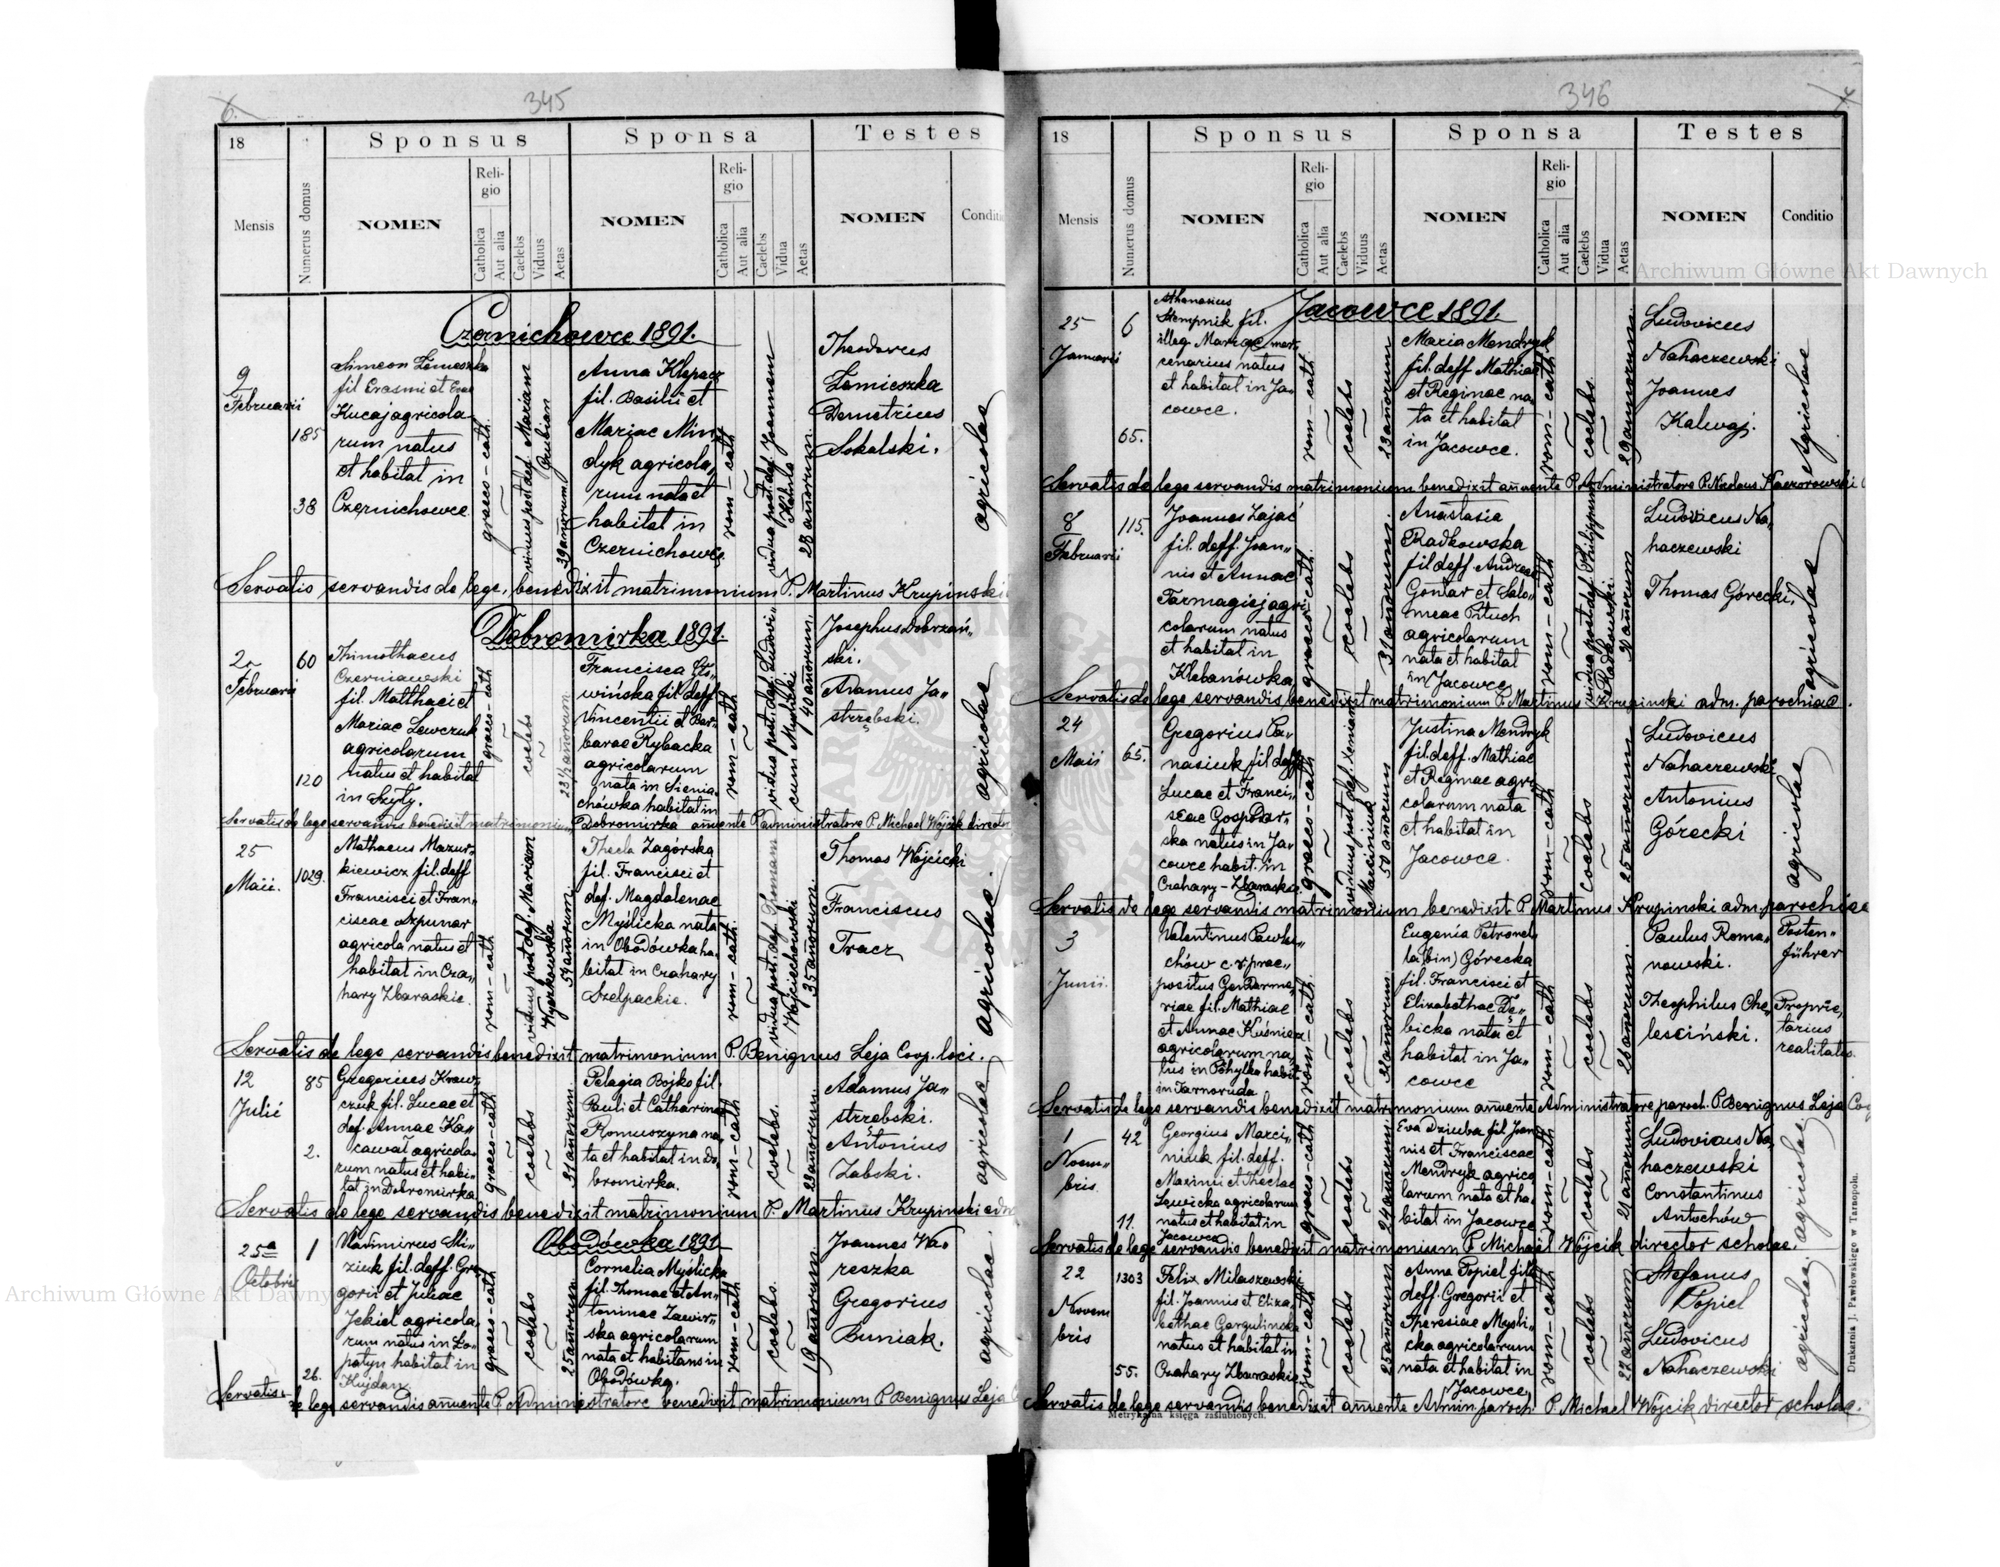 345
6.
18
Sponsus
Sponsa
Testes
Mensis
Numerus domus
NOMEN
Religio
Catholica
Aut alia
Caelebs
Viduus
Aetas
NOMEN
Religio
Catholica
Aut alia
Caelebs
Vidua
Aetas
NOMEN
Conditio
Czernichowce 1891.
9
Februarii
185
38
Simeon Lemieszka
fil Erasmi et Evae
Kucaj agricola
rum natus
et habitat in
Czernichowce
graeco-cath.
viduus post def. Mariam
39 annorum
Anna Klepacz
fil. Basilii et
Mariae Min
dyk agricola„
rum nata et
habitat in
Czernichowce.
rom-cath
vidua post def. Joannem
28 annorum.
Theodorus
Lemieszka
Demetrius
Sokalski.
agricolae
Servatis servandis de lege, benedixit matrimonium P. Martinus Krupinski
Dobromirka 1891.
2
Februarii
60
120
Thimothaeus
Czerniawski
fil. Matthaei et
Mariae Lewczuk
agricolarum
natus et habitat
in Szyly.
graeco-cath
coelebs
23½ annorum
Francisca Gło„
wińska fil deff
Vincentii et Bar„
barae Rybacka
agricolarum
nata in Sienia„
chówka habitat in
Dobromirka
rom-cath
vidua post. def. Ludovi„
cum Myslicki
40 annorum.
Josephus Dobrzań„
ski.
Adamus Ja„
strzębski.
agricolae
Servatis de lege servandis benedixit matrimonium annuente P. administratore P. Michael Wójcik director
25
Maii.
1029.
Mathaeus Mazur„
kiewicz fil. deff
Francisci et Fran„
ciscae Szpunar
agricola natus et
habitat in Cza„
hary Zbaraskie.
rom-cath
viduus post def. Mariam
Wyrkowska
54 annorum.
Thecla Zagórska
fil. Francisci et
def. Magdalenae
Myślicka nata
in Obodówka ha„
bitat in Czahary
Szelpackie.
rom-cath.
vidua post. def. Thomam
Wojciechowski
35 annorum.
Thomas Wójcicki
Franciscus
Tracz
agricolae.
Servatis de lege servandis benedixit matrimonium P. Benignus Leja Coop. loci.
12
Julii
85
2.
Gregorius Kraw„
czuk fil. Lucae et
def. Annae Ka„
cawał agricola„
rum natus et habi„
tat in Dobromirka
graeco-cath
coelebs
31 annorum.
Pelagia Bojko fil.
Pauli et Catharinae
Romuszyna na„
ta et habitat in Do„
bromirka.
rom-cath
coelebs.
23 annorum.
Adamus Ja„
strzębski.
Antonius
Zabski.
agricolae
Servatis de lege servandis benedixit matrimonium P. Martinus Krupinski adm
Obodówka 1891
25
Octobris
1
26.
fil. deff. Gre„
gorii et Juliae
Jekiel agricola„
rum natus in Lo„
patyn habitat in
Kujdan
graeco-cath
coelebs
25 annorum.
Cornelia Myślicka
fil. Thomae et An„
toninae Zawir„
ska agricolarum
nata et habitans in
Obodówka.
rom-cath
coelebs.
19 annorum
Joannes Wa„
reszka
Gregorius
Buniak.
agricolae.
Servatis de lege servandis annuente P. Administratore benedixit matrimonium P. Benignus Leja
346
18
Sponsus
Sponsa
Testes
Mensis
Numerus domus
NOMEN
Religio
Catholica
Aut alia
Caelebs
Viduus
Aetas
NOMEN
Religio
Catholica
Aut alia
Caelebs
Vidua
Aetas
NOMEN
Conditio
Jacowce 1891.
25
Januarii
6
65.
Athanasius
Stempnik fil.
illeg. Mariae mer„
cenarius natus
et habitat in Ja„
cowce.
rom-cath
coelebs
23 annorum
Maria Mendryk
fil. deff Mathiae
et Reginae na„
ta et habitat
in Jacowce.
rom-cath.
coelebs.
29 annorum.
Ludovicus
Nahaczewski
Joannes
Kalwaj.
agricolae
Servatis de lege servandis matrimonium benedixit annuente P. Administratore P. Nicolaus Kaczorowski
8
Februarii
115.
Joannes Zając
fil. deff. Joan„
nis et Annae
Tarmagiej agri„
colarum natus
et habitat in
Klebanówka
graeco cath.
coelebs
31 annorum.
Anastasia
Radkowska
fil deff. Andreae
Gontar et Salo„
meae Pituch
agricolarum
nata et habitat
in Jacowce
rom-cath
vidua post def. Philippum
Radkowski
31 annorum
Ludovicus Na„
haczewski
Thomas Górecki.
agricolae
Servatis de lege servandis benedixit matrimonium P. Martinus Krupinski adm. parochiae.
24
Maii
65.
Gregorius Pa„
nasiuk fil deff
Lucae et Franci„
scae Gospodar„
ska natus in Ja„
cowce habit. in
Czahary-Zbaraskie.
graeco-cath
viduus post def. Xeniam
Marciniuk
50 annorum
Justina Mendryk
fil. deff. Mathiae
et Reginae agri„
colarum nata
et habitat in
Jacowce.
rom-cath
coelebs
25 annorum
Ludovicus
Nahaczewski
Antonius
Górecki
agricolae
Servatis de lege servandis matrimonium benedixit P. Martinus Krupinski adm. parochiae
3
Junii.
Valentinus Pawło„
chów c. r. prae„
positus Gendarme„
riae fil. Mathiae
et Annae Kuśnierz
agricolarum na„
tus in Pohylka habit.
in Tarnoruda
rom-cath.
coelebs
Eugenia Petronel
la (bin) Górecka
fil. Francisci et
Elisabethae Dę„
bicka nata et
habitat in Ja„
cowce
rom-cath
coelebs
26 annorum.
Paulus Roma„
nowski.
Theophilus Che„
lesciński.
Posten„
führer
Proprie„
tarius
realitatis.
Servatis de lege servandis benedixit matrimonium annuente Administratore paroch. P. Benignus Leja Coop
1
Novem„
bris
42
11.
Georgius Marci„
niuk fil. deff.
Maximi et Theclae
Sawicka agricolarum
natus et habitat in
Jacowce
graeco-cath
coelebs
24 annorum.
Eva Dziuba fil Joan
nis et Franciscae
Mendryk agrico
larum nata et ha„
bitat in Jacowce
rom-cath
coelebs
21 annorum
Ludovicus Na„
haczewski
Constantinus
Antschów
agricolae
Servatis de lege servandis benedixit matrimonium P. Michael Wójcik director scholae.
22
Novem
bris
1303
55.
Felix Milaszewski
fil. Joannis et Eliza„
bethae Gargulinska
natus et habitat in
Czahary Zbaraskie
rom-cath.
coelebs
25 annorum
Anna Popiel filia
deff. Gregorii et
Theresiae Mysli„
cka agricolarum
nata et habitat in
Jacowce
rom-cath
coelebs
22 annorum
Stefanus
Popiel
Ludovicus
Nahaczewski
agricolae
Servatis de lege servandis benedixit annuente Admin. paroch. P. Michael Wójcik director scholae.
Metrykalna księga zaślubionych.
Drukarnia J. Pawłowskiego w Tarnopolu.
Archiwum Główne Akt Dawnych
Archiwum Główne Akt Dawnych